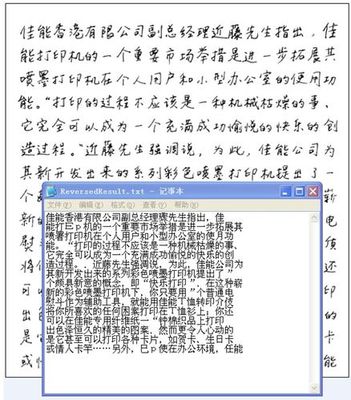 佳能香港有限公司副总经理近藤先生指出，佳
能打印机的一个重要市场举措是进一步拓展其
喷墨打印机在个人用户和小型办公室的使用功
能。“打印的过程不应该是一种机械枯燥的事、
它完全可以成为一个充满成功愉悦的快乐的创
造过程。”近藤先生强调说，为此，佳能公司为
其新开发出来的系列彩色喷墨打印机提出了一
ReversedResult.txt - 记事本
文件(F) 编辑(E) 格式(O) 查看(V) 帮助(H)
佳能香港有限公司副总经理骤先生指出，佳
能打巳p机的一个重要市场举措是进一步拓展其
喷署打印机在个人用户和小型办公室的使月功
能。“打印的过程不应该是一种机械枯燥的事、
它完全可以成为一个充满成功愉悦的快乐的创
造过程．、近藤先生强凋说，为此，佳能公司为
其新开发出来的系列彩色喷墨打印机提出了”
个颇具新意的概念，即“快乐打印”．在这种崭
新的彩色喷墨打印机下，你只要用”个普通电
熨斗作为辅助工具，就能用佳能丁恤转印介伎
将你所喜欢的任何困案打印在丁恤衫上；你还
可以在佳能专用纤维纸一“钟棉织品上打印
出色泽恒久的精美的图案．然而更令人心动的
是它甚至可以打印各种卡片，如贺卡、生日卡
或情人卡竿……另外，巳p使在办公环境，任能